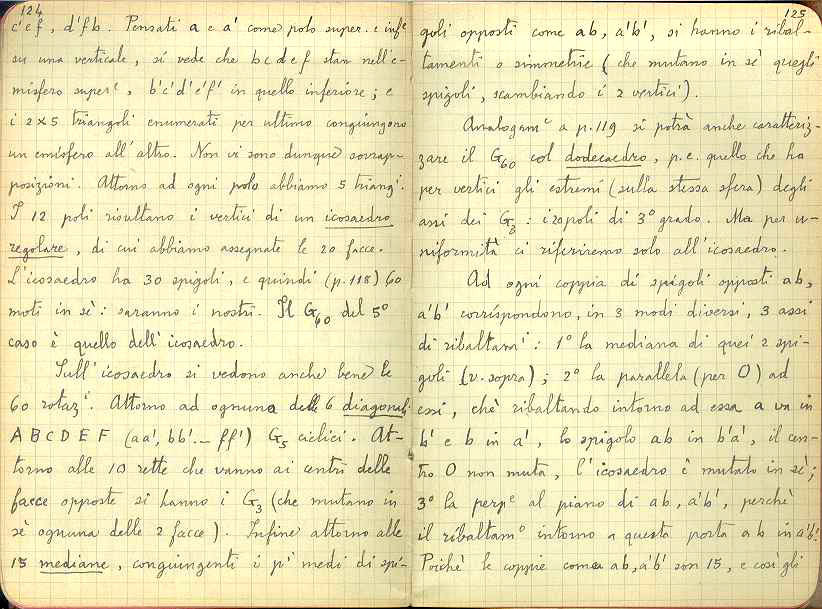 124
c'ef, d'fb. Pensati a e a' come polo super. e infe
su una verticale, si vede che bcdef stan nell'e-
misfero superᵉ, b'c'd'e'f' in quello inferiore; e
i 2×5 triangoli enumerati per ultimo congiungono
un emisfero all'altro. Non vi sono dunque sovrap-
posizioni. Attorno ad ogni polo abbiamo 5 triangⁱ.
I 12 poli risultano i vertici di un icosaedro
regolare, di cui abbiamo assegnate le 20 facce.
L'icosaedro ha 30 spigoli, e quindi (p.118) 60
moti in sè: saranno i nostri. Il G₆₀ del 5°
caso è quello dell'icosaedro.
Sull'icosaedro si vedono anche bene le
60 rotazⁱ. Attorno ad ognuna delle 6 diagonali
A B C D E F (aa', bb'... ff') G₅ ciclici. At-
torno alle 10 rette che vanno ai centri delle
facce opposte si hanno i G₃ (che mutano in
sè ognuna delle 2 facce). Infine attorno alle
15 mediane, congiungenti i pⁱ medi di spi-
125
goli opposti come ab, a'b', si hanno i ribal-
tamenti o simmetrie (che mutano in sè quegli
spigoli, scambiando i 2 vertici).
Analogamᵉ a p.119 si potrà anche caratteriz-
zare il G₆₀ col dodecaedro, p.e. quello che ha
per vertici gli estremi (sulla stessa sfera) degli
assi dei G₃: i 20 poli di 3° grado. Ma per u-
niformità ci riferiremo solo all'icosaedro.
Ad ogni coppia di spigoli opposti ab,
a'b' corrispondono, in 3 modi diversi, 3 assi
di ribaltamⁱ: 1° la mediana di quei 2 spi-
goli (v. sopra); 2° la parallela (per O) ad
essi, chè ribaltando intorno ad essa a va in
b' e b in a', lo spigolo ab in b'a', il cen-
tro O non muta, l'icosaedro è mutato in sè;
3° la perpᵉ al piano di ab, a'b', perchè
il ribaltamᵒ intorno a questa porta ab in a'b'.
Poichè le coppie come ab, a'b' son 15, e così gli